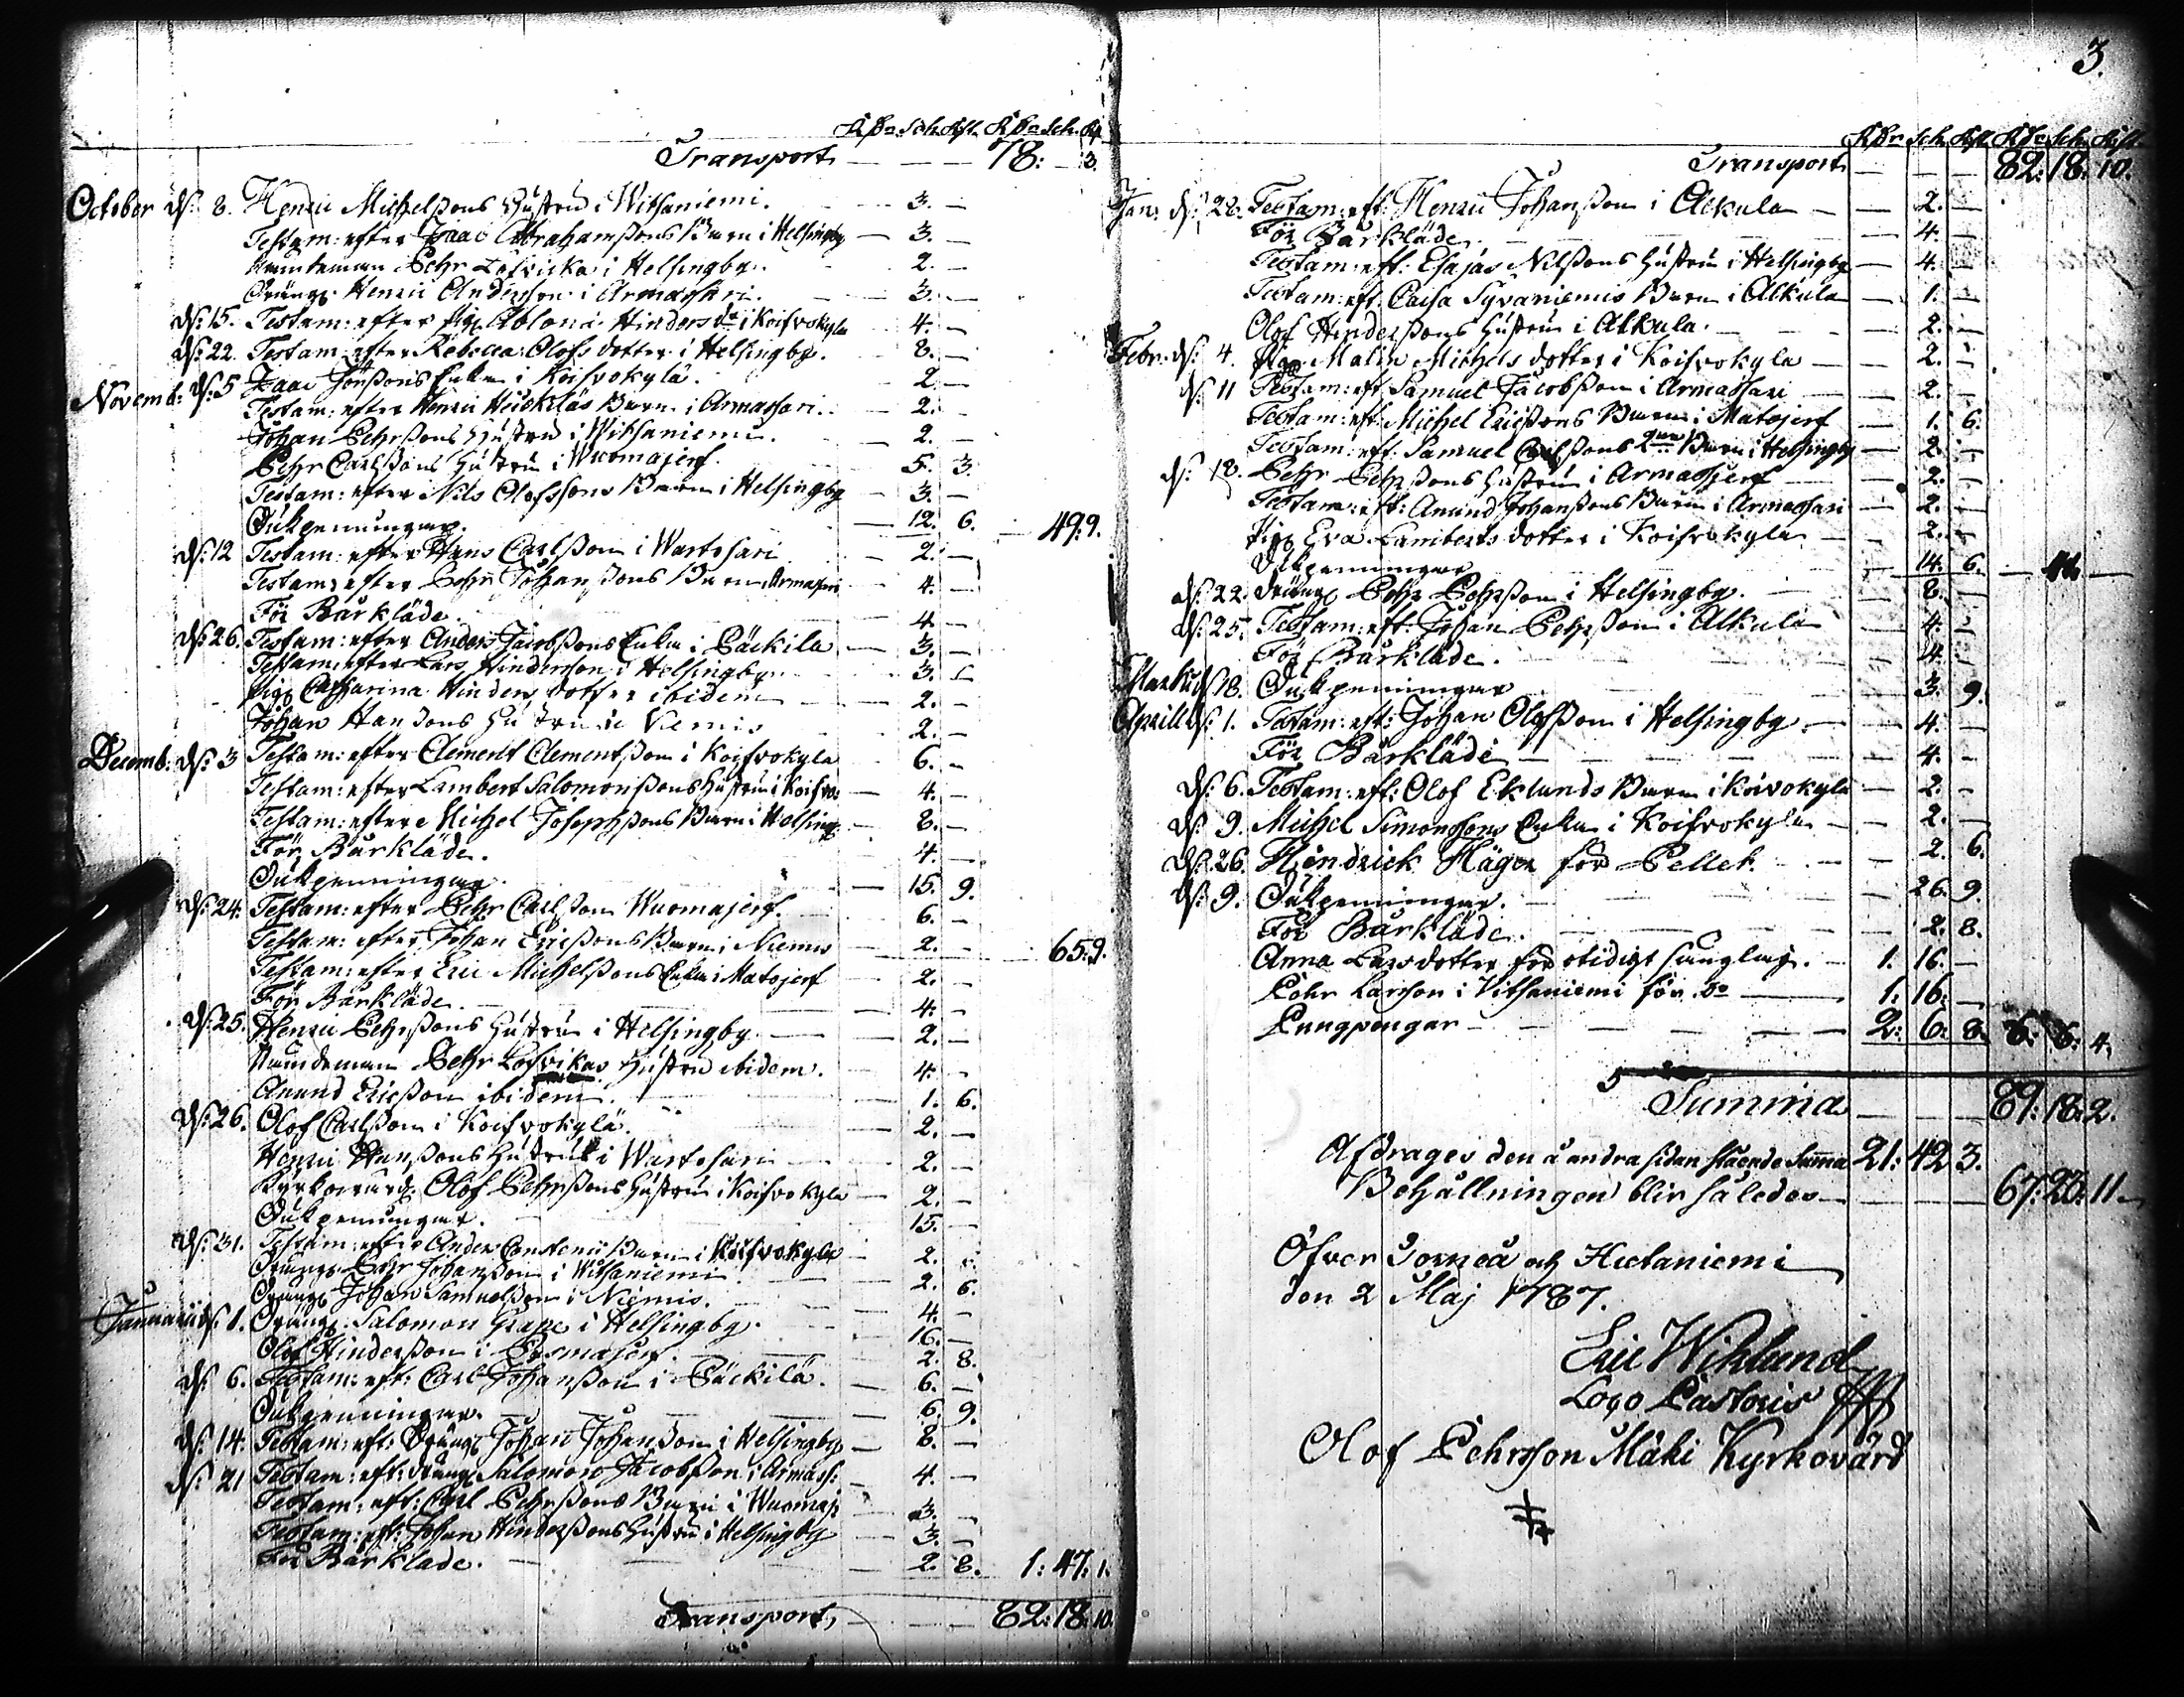 Rdr Sch. Rst. Rdr Sch. Rst
Transport — — — 78: — 3.
October d. 8. Henric Michelssons Hustru i Witsaniemi. 3. —
Testam: efter Isaac Abrahamssons Barn i Helsingby — 3. —
Nämndeman Pehr Löfvikas i Helsingby. 2. —
Dräng. Henric Andersson i Armassari. 3. —
d: 15. Testam: efter pig. Abluna Hinders dr i Koifvokyla 4. —
d: 22. Testam: efter Rebecca Olofs dotter i Helsingby. 8. —
Novemb: d: 5 Isaac Jönssons Enka i Koifvokylä. 2. —
Testam: efter Henric Heickiläs Barn i Armassari. 2. —
Johan Pehrssons Hustru i Witsaniemi. — 2. —
Pehr Carlssons Hustru i Wuomajerf. 5. 3.
Testam: efter Nils Olofssons Barn i Helsingby — 3. —
Ouckpenningar. — 12. 6. — 49: 9.
d: 12 Testam: efter Hans Carlsson i Wartosari — 2. —
Testam: efter Pehr Johanssons Barn i Armassari — 4. —
För Bårkläde. 4. —
d: 26. Testam: efter Anders Jacobssons Enka i Päckilä — 3. —
Testam: efter Lars Hindersson i Helsingby. 3. —
Pig. Catharina Hinders dotter ibidem — 2. —
Johan Hanssons Hustru i Niemis 2. —
Decemb: d: 3 Testam: efter Clement Clementsson i Koifvokyla 6. —
Testam: efter Lambert Salomonssons Hustru i Koifvo: — 4. —
Testam: efter Michel Josephssons Barn i Helsing: 8. —
För Bårkläde. 4. —
Ouckpenningar. — 15. 9.
d: 24. Testam: efter Pehr Carlsson Wuomajerf. — 6. —
Testam: efter Johan Ericssons Barn i Niemis — 2. — 65: 9.
Testam: efter Eric Michelssons Enka i Matojerf 2. —
För Bårkläde. — 4. —
d: 25. Henric Pehrssons Hustru i Helsingby — 2. —
Nämndeman Pehr Löfvikas Hustru ibidem. 4. —
Anund Ericsson ibidem. 1. 6.
d: 26. Olof Carlsson i Koifvokylä. 2. —
Henric Hanssons Hustru i Wartosari — 2. —
Kyrkowärd. Olof Pehrssons Hustru i Koifvokyla — 2. —
Ouckpenningar. 15. —
d: 31. Testam: efter Anders Constenii Barn i Koifvokyla — 2. —
Dräng. Pehr Johansson i Witsaniemi — 2. 6.
Dräng. Johan Samuelsson i Niemis. 4. —
Januarii d: 1. Dräng. Salomon Grape i Helsingby. — 16. —
Olof Hindersson i 2. 8.
d: 6. Testam: eft: Carl Johansson i Päckilä. — 6. —
Ouckpenningar. — 6. 9.
d: 14. Testam: eft: Dräng. Johan Johansson i Helsingby — 8. —
d: 21 Testam: eft: dräng. Salomon Jacobsson i Armass: — 4. —
Testam: eft: Carl Pehrssons Barn i Wuomaj: — 3. —
Testam: eft: Johan Hinderssons Hustru i Helsingby — 3. —
För Bårklade. — 2. 8. 1: 47: 1.
Transport, — — — 82: 18: 10.
3.
Rdr Sch. Rst. Rdr Sch. Rst.
Transport — — — 82: 18: 10.
Jan: d: 28. Testam: eft: Henric Johansson i Alkula — — 2. —
För Bårkläde. — 4. —
Testam: eft: Esajas Nilssons Hustru i Helsingby — 4. —
Testam: eft: Caisa Syvaniemis Barn i Alkula — 1. —
Olof Hinderssons Hustru i Alkula. — 2. —
Febr: d: 4. Pig. Malin Michels dotter i Koifvokyla — 2. —
d: 11 Testam: eft. Samuel Jacobsson i Armassari — 2. —
Testam: eft: Michel Ericssons Barn i Matojerf — 1. 6.
Testam: eft: Samuel Carlssons 2ne Barn i Helsingby — 2. —
d: 18. Pehr Pehrssons Hustru i Armassjerf — 2. —
Testam: eft: Anund Johanssons Barn i Armassari — 2. —
Pig. Eva Lamberts dotter i Koifvokyla — 2. —
Ouckpenningar — 14. 6. — —
d: 22. Dräng. Pehr Pehrsson i Helsingby. — 8. —
d: 25. Testam: eft: Johan Pehrsson i Alkula — 4. —
För Bårkläde. — 4. —
Martii d: 18. Ouckpenningar — 3. 9.
Aprill d: 1. Testam: eft: Johan Olofsson i Helsingby. — 4. —
För Bårkläde — 4. —
d: 6. Testam: eft: Olof Eklunds Barn i Koivokyla — 2. —
d: 9. Michel Simonssons Enka i Koifvokyla — 2. —
d: 26. Hindrick Häger för Pellet. — 2. 6.
d: 9. Ouckpenningar. — 26. 9.
För Bårkläde. — 2. 8.
Anna Larsdotter för otidigt sänglag. — 1. 16. —
Pehr Larsson i Vitsaniemi för do — 1: 16: —
Pungpengar — — — 2: 6: 8. 6: 4.
Summa — — — 89: 18: 2.
Afdrages den å andra sidan stående Summa 21: 42 3.
Behållningen blir således — — — 67: 23: 11
Öfver Torneå och Hietaniemi
den 2 Maj 1787.
Eric Wiklund
Loco Pastoris
Olof Pehrsson Mäki Kyrkovärd